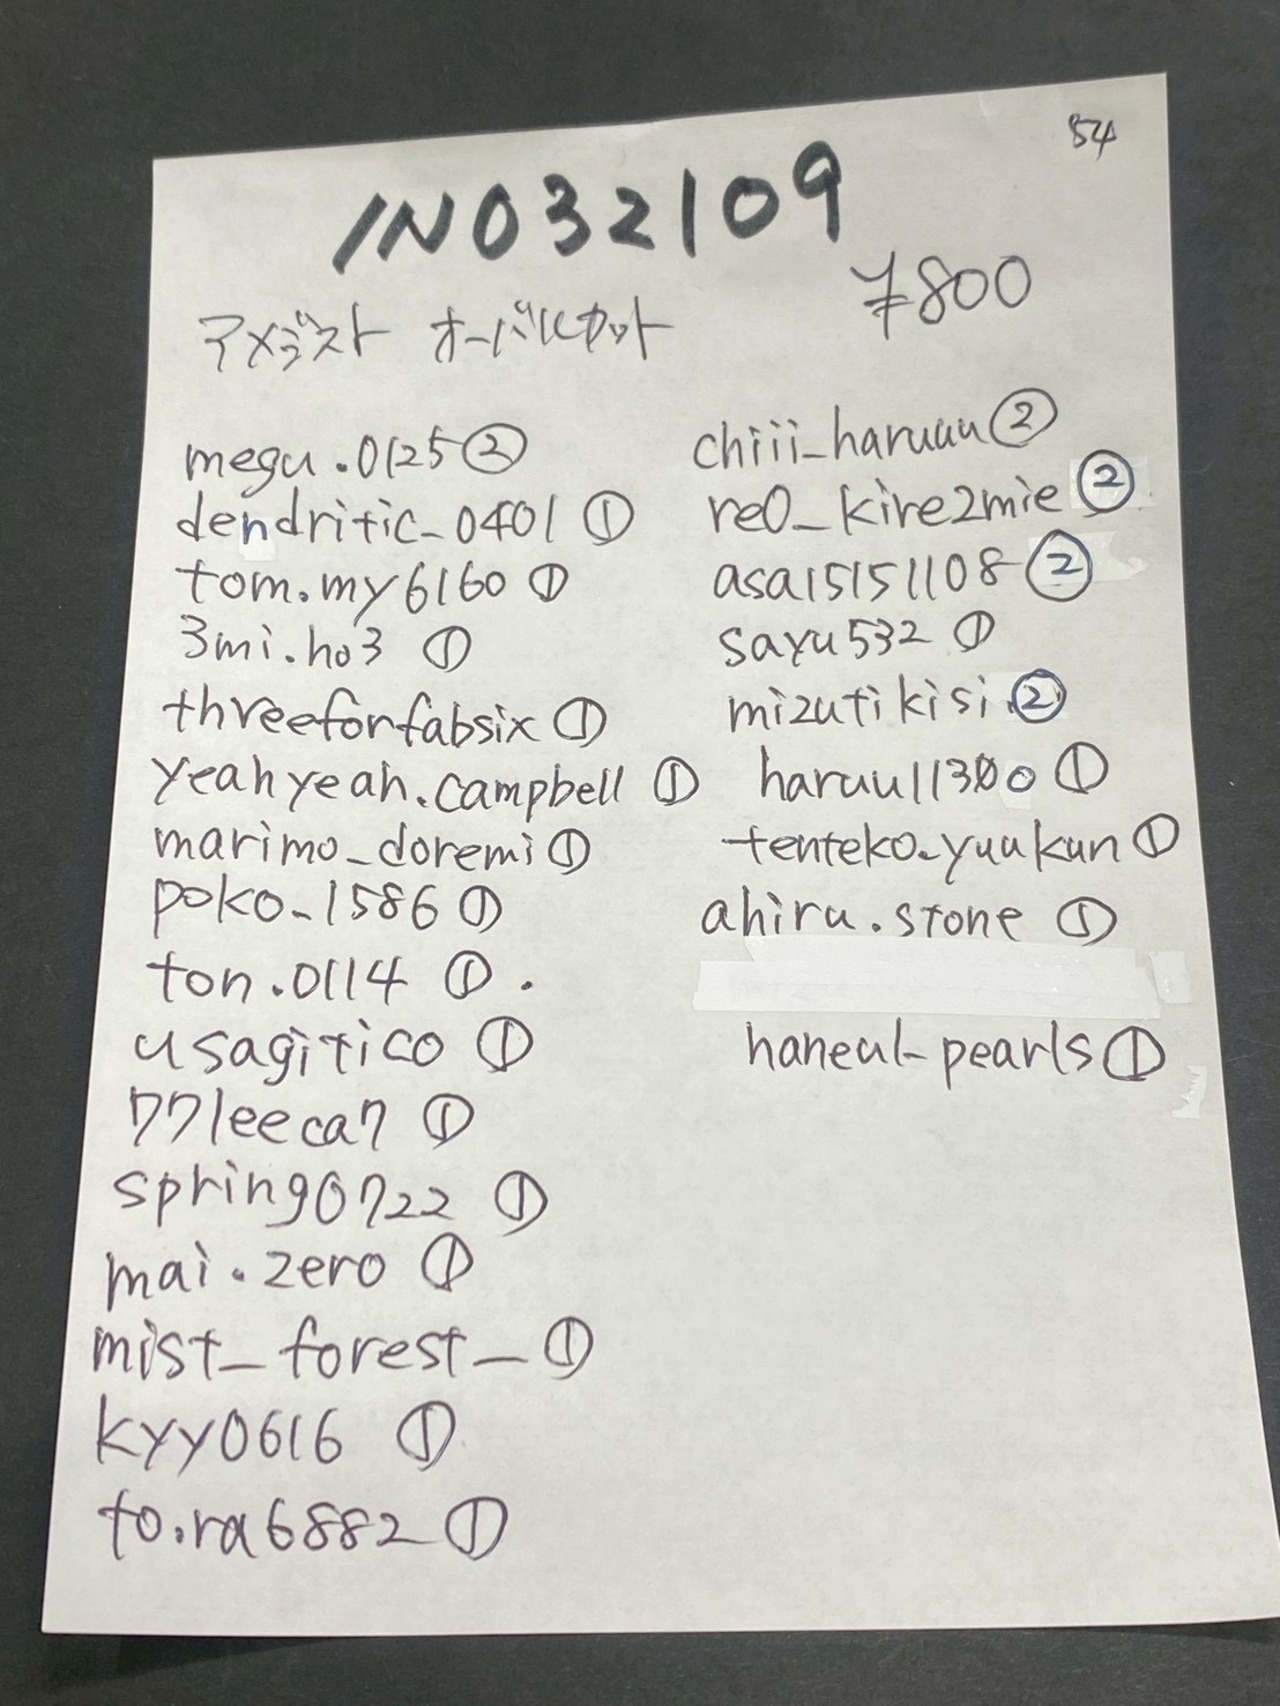 54
IN032109
¥800
アメジスト オーバルカット
megu.0125②
dendritic_0401 ①
tom.my6160 ①
3mi.ho3 ①
threeforfabsix ①
yeahyeah.campbell ①
marimo_doremi ①
poko_1586 ①
ton.0114 ①.
usagitico ①
77leeca7 ①
spring0722 ①
mai.zero ①
mist_forest_ ①
kyy0616 ①
to.ra6882 ①
chiii_haruuu②
re0_kire2mie ②
asa15151108 ②
sayu532 ①
mizutikisi ②
haruu11300 ①
tenteko.yuukun ①
ahiru.stone ①
haneul_pearls ①